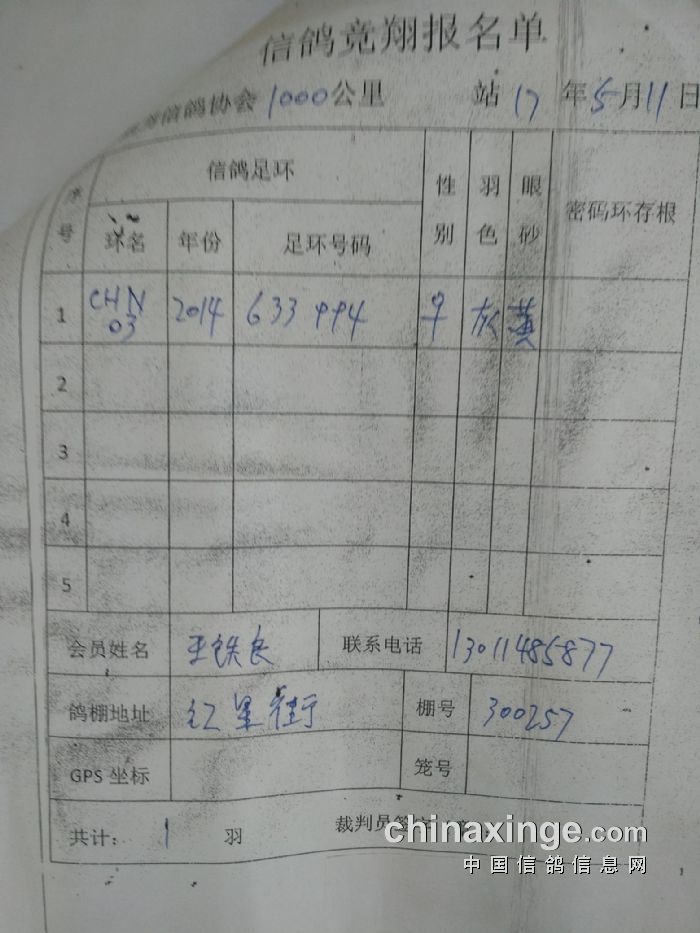 信鸽竞翔报名单
信鸽协会 1000 公里 站 17 年 5 月 11 日
序号 信鸽足环 性别 羽色 眼砂 密码环存根
环名 年份 足环号码
1 CHN 03 2014 633994 ♀ 灰 黄
2
3
4
5
会员姓名 王铁良 联系电话 13011485877
鸽棚地址 红星街 棚号 300257
GPS 坐标 笼号
共计: 1 羽 裁判员签
chinaxinge.com
中国信鸽信息网